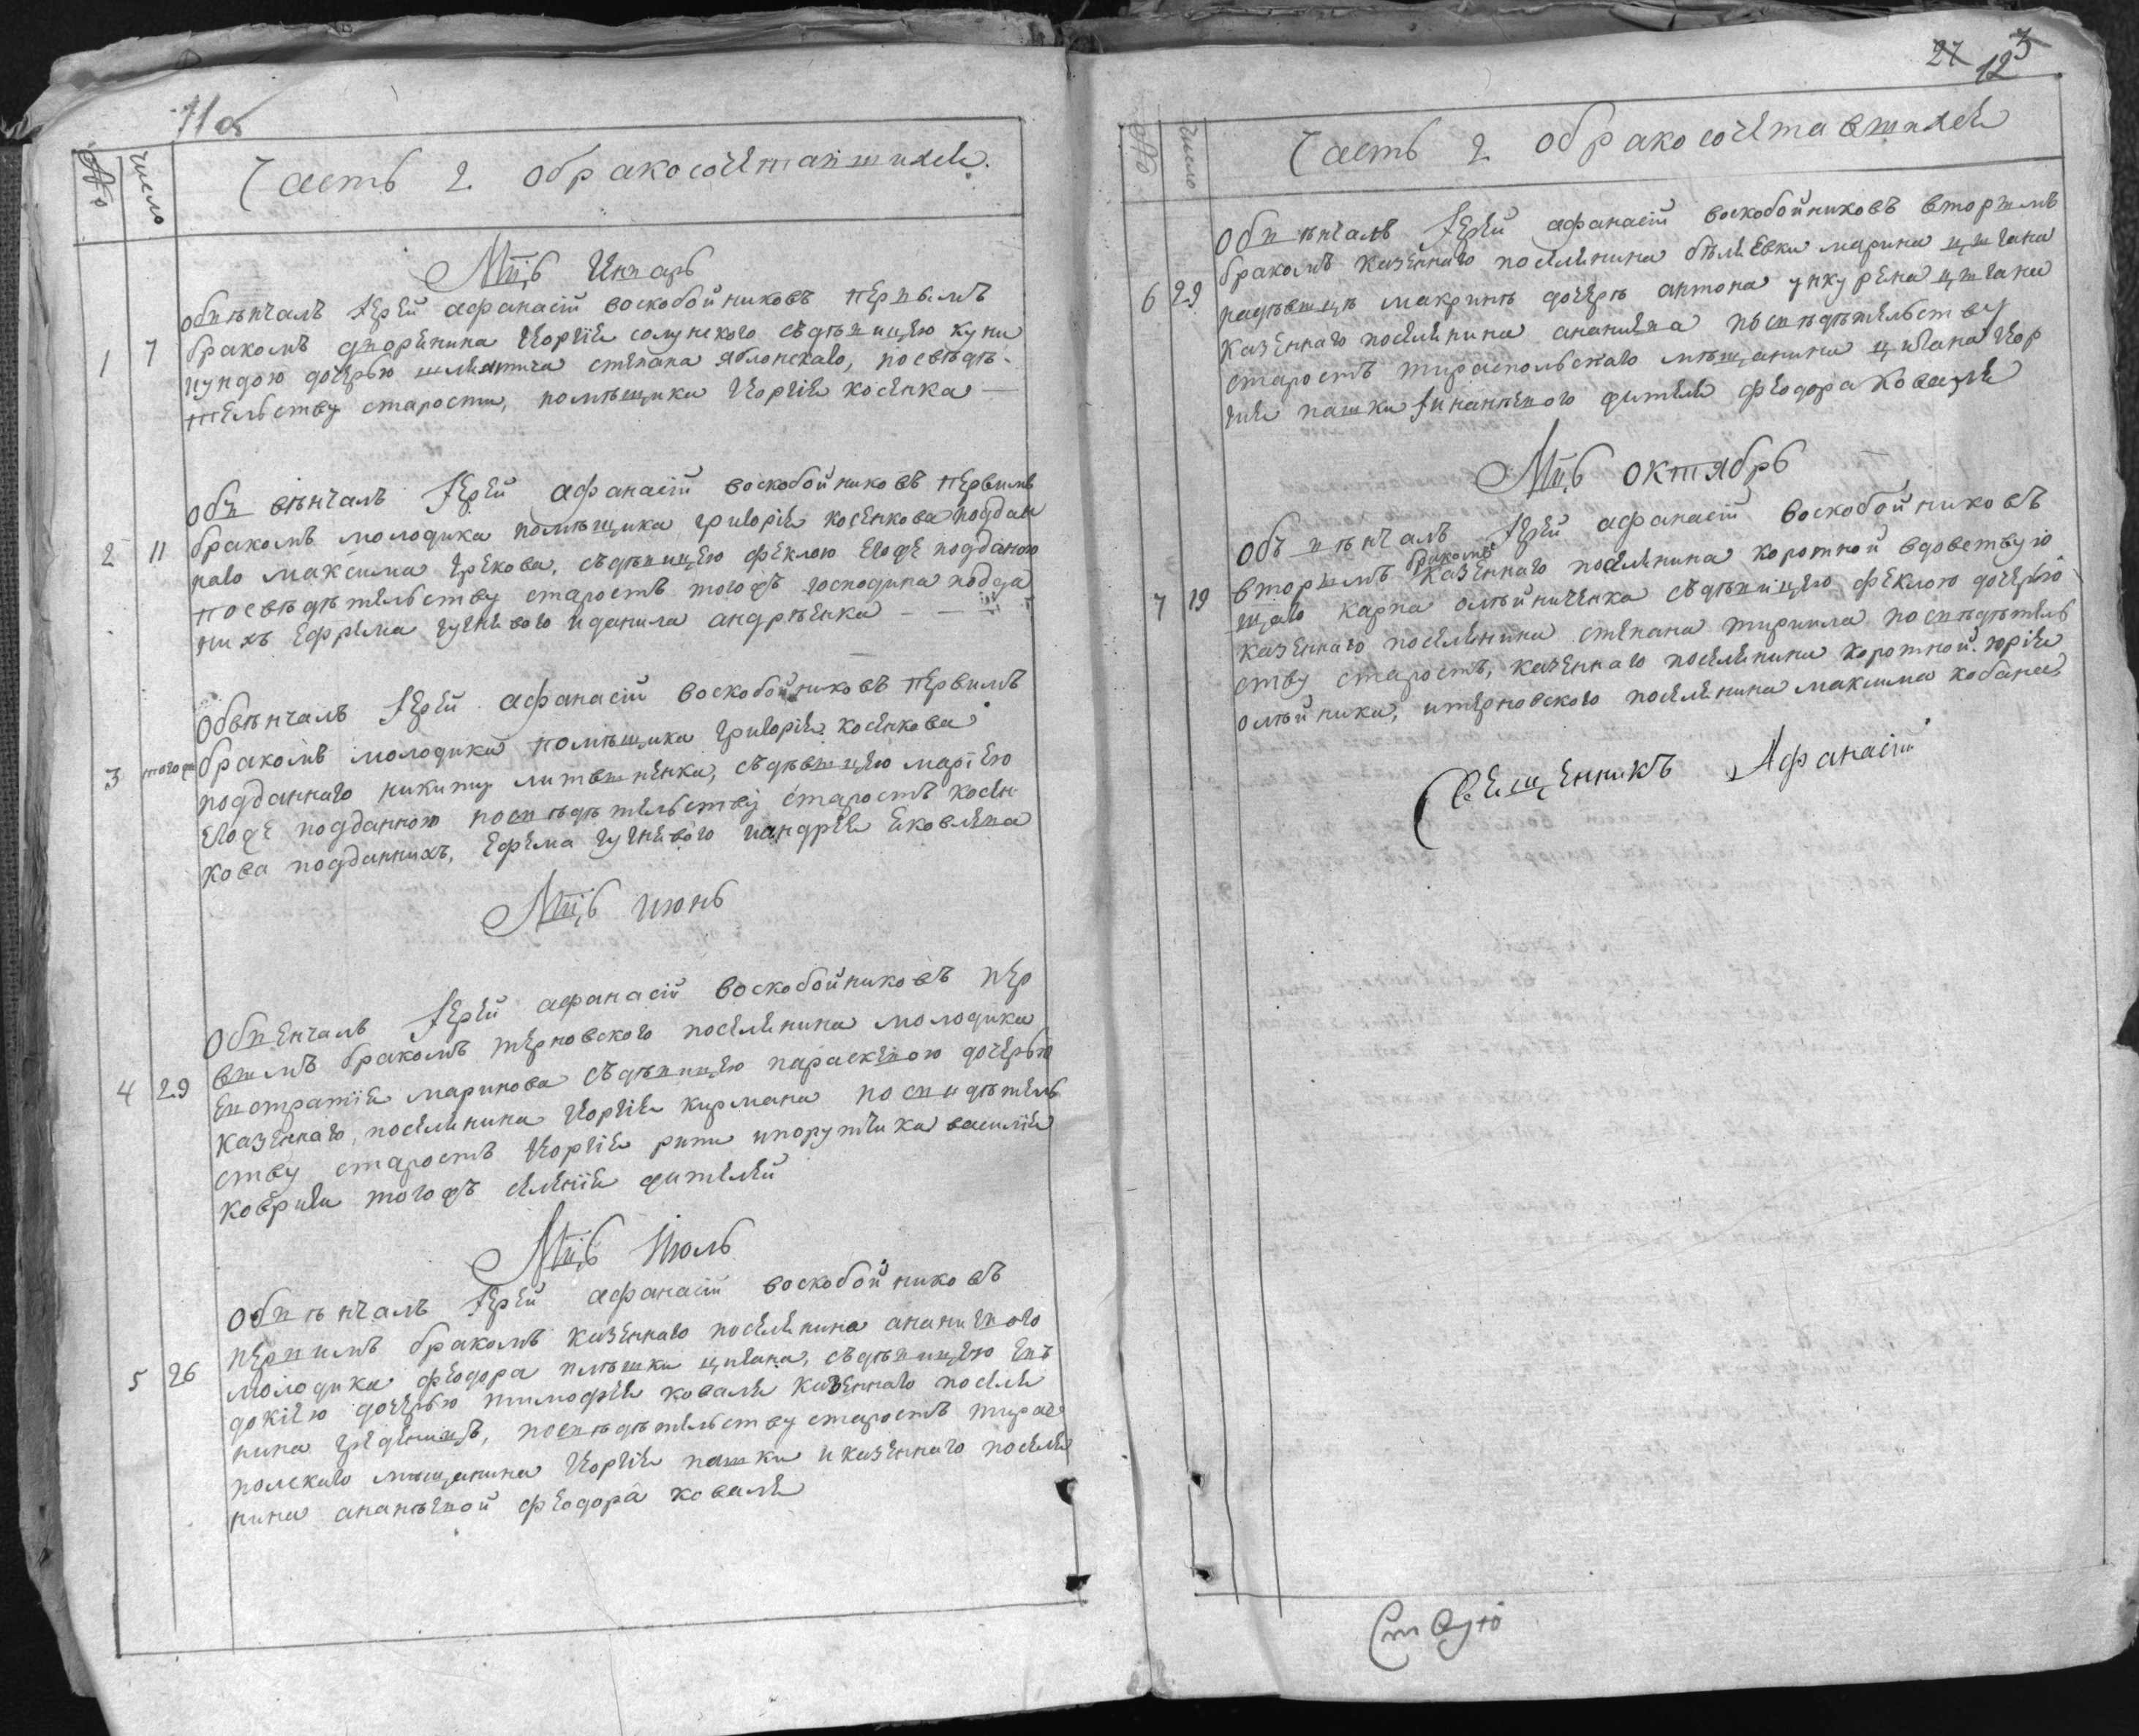 №
число
Часть 2 обракосочетавшихся.
Мцъ Генварь
1 7 обвѣнчалъ Іерей афанасій воскобойниковъ первымъ
бракомъ дворенина Георгія солунского съдѣвицею куни
гундою дочерью шляхтича степана яблонскаго, посвѣдѣ-
тельству старости, помѣщика Георгія косенка
2 11 обвѣнчалъ Іерей афанасій воскобойниковъ первимъ
бракомъ молодика помѣщика григорія косенкова поддан
наго максима грекова, съдѣвицею феклою егоже подданою
посвѣдѣтельству старостъ тогожъ господина подда
нихъ ефрема гугнивого иданила андрѣенка
3 тогож обвѣнчалъ Іерей афанасій воскобойниковъ первимъ
бракомъ молодика помѣщика григорія косенкова
подданнаго никиту литвиненка, съдѣвицею маріею
егоже подданною посвѣдѣтельству старостъ косен
кова подданнихъ, ефрема гугнивого иандрея яковлева
Мцъ июнь
4 29 обвенчалъ Іерей афанасій воскобойниковъ пер
вимъ бракомъ терновского поселянина молодика
евстратія маринова съдѣвицею параскевою дочерью
казеннаго, поселянина Георгія кирмана посвидѣтель
ству старостъ Георгія рити ипорутчика василія
ковриги тогожъ селенія жителей
Мцъ Июль
5 26 обвѣнчалъ Іерей афанасій воскобойниковъ
первимъ бракомъ казеннаго поселянина ананиевого
молодика феодора пашки цигана, съдѣвицею ев
докіею дочерью тимофея коваля казеннаго поселя
нина гредениць, посвѣдѣтельству старостъ тирас
полскаго мѣщанина Георгія пашки иказеннаго поселя
нина ананѣевой феодора коваля
27 123
№
число
Часть 2 обракосочетавшихся
6 29 обвѣнчалъ Іерей афанасій воскобойниковъ вторымъ
бракомъ казеннаго поселянина бѣляевки марина цигана
надѣвицѣ макринѣ дочерѣ антона унгурена цигана
казеннаго поселянина ананиева посвѣдѣтельству
старостъ тираспольскаго мѣщанина цигана Геор
гия пашки иананѣевого жителя феодора Коваля
Мцъ октябрь
7 19 обвѣнчалъ Іерей афанасій воскобойниковъ
вторымъ бракомъ казеннаго поселянина коротной вдовствую
щаго карпа олѣйниченка съдѣвицею феклою дочерью
казеннаго поселянина степана тириила посвѣдѣтель
ству старостъ, казеннаго поселянина коротной юрія
олѣйника, итерновского поселянина максима кобанея
Священникъ Афанасій